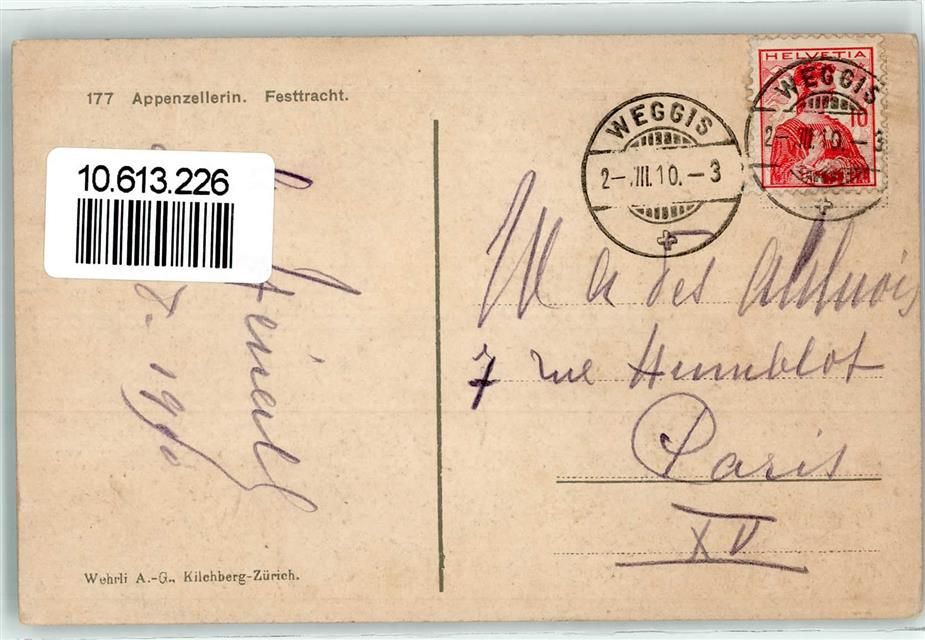 177 Appenzellerin. Festtracht.
10.613.226
HELVETIA
10
WEGGIS
2-.VIII.10.-3
WEGGIS
2-.VIII.10.-3
des
7 rue Humblot
Paris
XV
8. 1910
Wehrli A.-G., Kilchberg-Zürich.